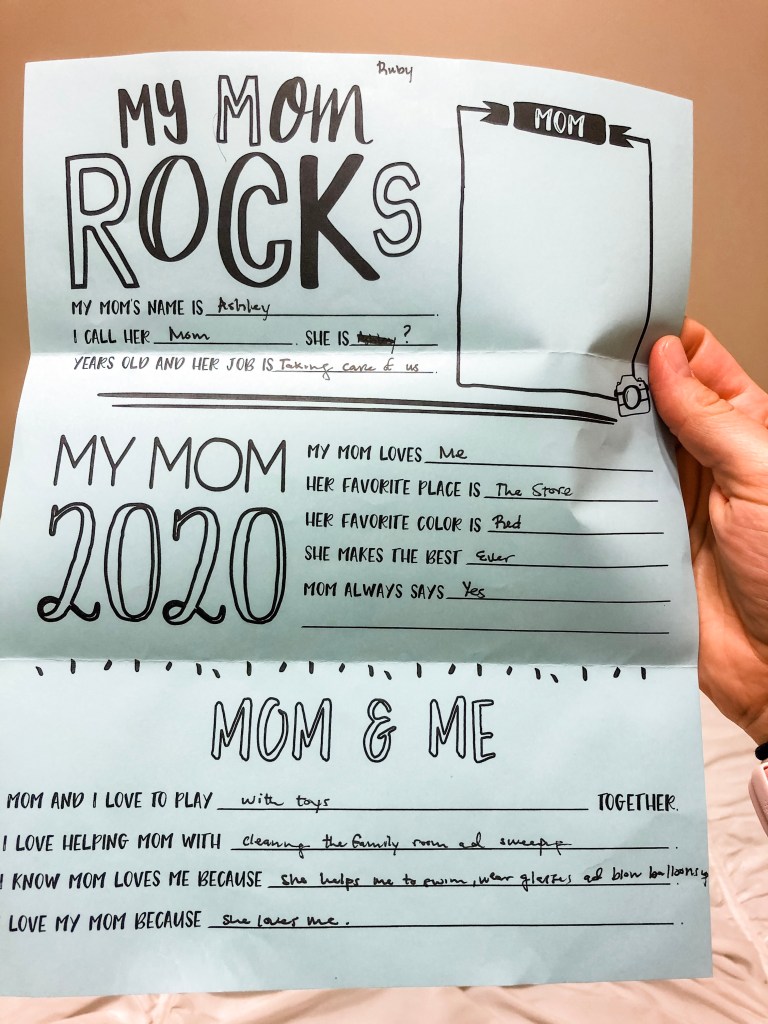 Ruby
MY MOM
ROCKS
MOM
MY MOM'S NAME IS Ashley.
I CALL HER Mom. SHE IS ?
YEARS OLD AND HER JOB IS Taking care of us.
MY MOM
2020
MY MOM LOVES Me
HER FAVORITE PLACE IS The Store
HER FAVORITE COLOR IS Red
SHE MAKES THE BEST Ever
MOM ALWAYS SAYS Yes
MOM & ME
MOM AND I LOVE TO PLAY with toys TOGETHER.
I LOVE HELPING MOM WITH cleaning the family room ad sweeping.
I KNOW MOM LOVES ME BECAUSE she helps me to swim, wear glasses ad blow balloons.
LOVE MY MOM BECAUSE she loves me.